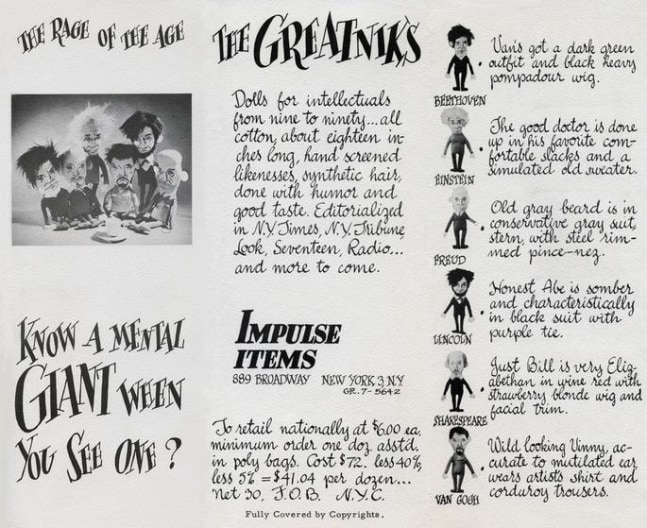 THE RAGE OF THE AGE
KNOW A MENTAL
GIANT WHEN
YOU SEE ONE?
THE GREATNIKS
Dolls for intellectuals
from nine to ninety...all
cotton, about eighteen in-
ches long, hand screened
likenesses, synthetic hair,
done with humor and
good taste. Editorialized
in N.Y. Times, N.Y. Tribune,
Look, Seventeen, Radio...
and more to come.
IMPULSE
ITEMS
889 BROADWAY NEW YORK 3 N.Y.
GR. 7-5642
To retail nationally at $6.00 ea.
minimum order one doz. asstd.
in poly bags. Cost $72. less 40%,
less 5% = $41.04 per dozen...
Net 30, F.O.B. N.Y.C.
Fully Covered by Copyrights.
BEETHOVEN
Van's got a dark green
outfit and black heavy
pompadour wig.
EINSTEIN
The good doctor is done
up in his favorite com-
fortable slacks and a
simulated old sweater.
FREUD
Old gray beard is in
conservative gray suit,
stern, with steel rim-
med pince-nez.
LINCOLN
Honest Abe is somber
and characteristically
in black suit with
purple tie.
SHAKESPEARE
Just Bill is very Eliz-
abethan in wine red with
strawberry blonde wig and
facial trim.
VAN GOGH
Wild looking Vinny, ac-
curate to mutilated ear
wears artists shirt and
corduroy trousers.